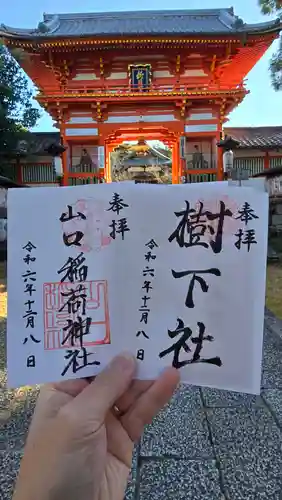 奉拝
樹下社
令和六年十二月八日
奉拝
山口稲荷神社
令和六年十二月八日